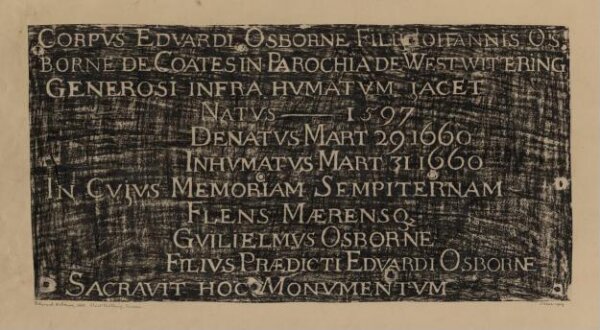 CORPVS EDVARDI OSBORNE FILII IOHANNIS OS
BORNE DE COATES IN PAROCHIA DE WESTWITERING
GENEROSI INFRA HVMATVM IACET
NATVS — 1597
DENATVS MART 29 1660
INHVMATVS MART 31 1660
IN CVIVS MEMORIAM SEMPITERNAM
FLENS MÆRENSQ.
GVILIELMVS OSBORNE
FILIVS PRÆDICTI EDVARDI OSBORNE
SACRAVIT HOC MONVMENTVM